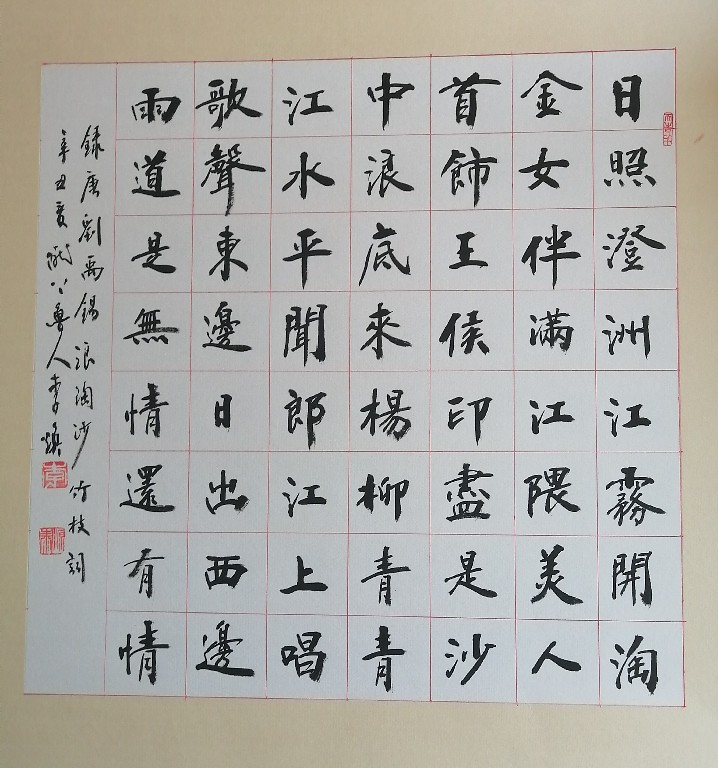 日照澄洲江霧開淘
金女伴滿江隈美人
首飾王侯印盡是沙
中浪底來楊柳青青
江水平聞郎江上唱
歌聲東邊日出西邊
雨道是無情還有情
錄唐劉禹錫浪淘沙竹枝詞
辛丑夏魯人李煥